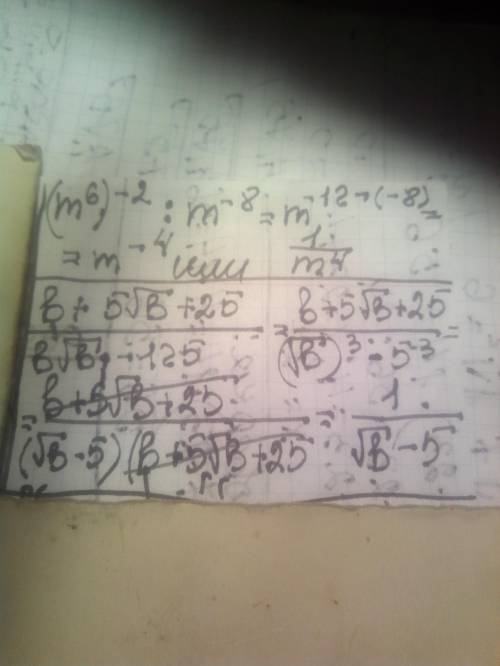 (m⁶)⁻² : m⁻⁸ = m⁻¹²⁻⁽⁻⁸⁾ =
= m⁻⁴ или 1/m⁴
(b + 5√b + 25)/(b√b - 125) = (b + 5√b + 25)/((√b)³ - 5³) =
= (b + 5√b + 25)/((√b - 5)(b + 5√b + 25) = 1/(√b - 5)